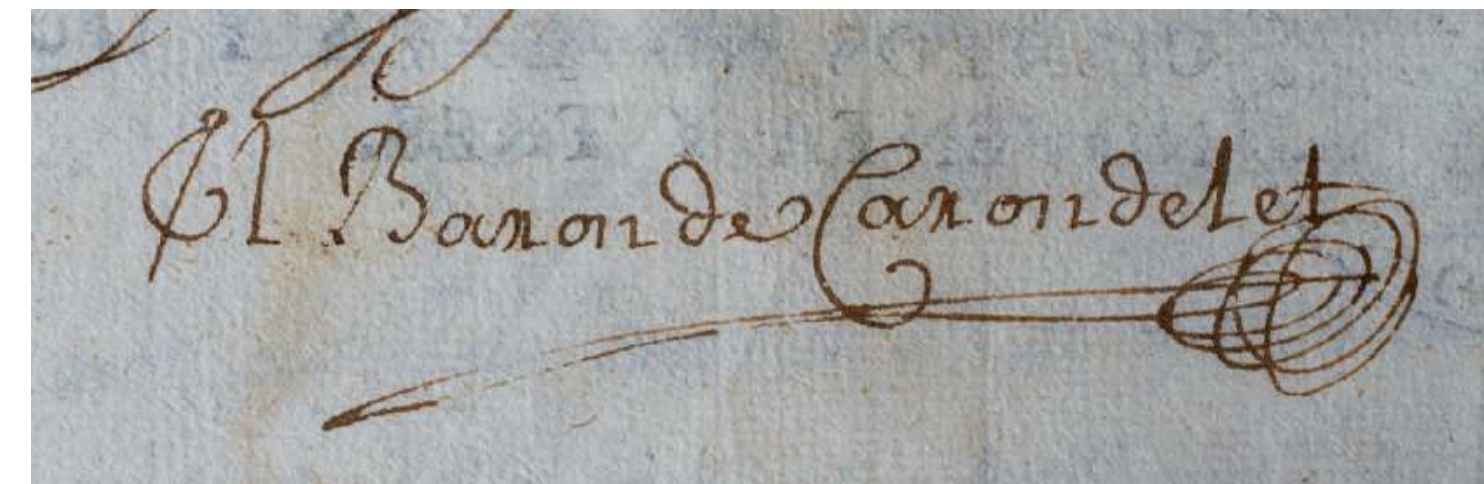 El Baron de Carondelet